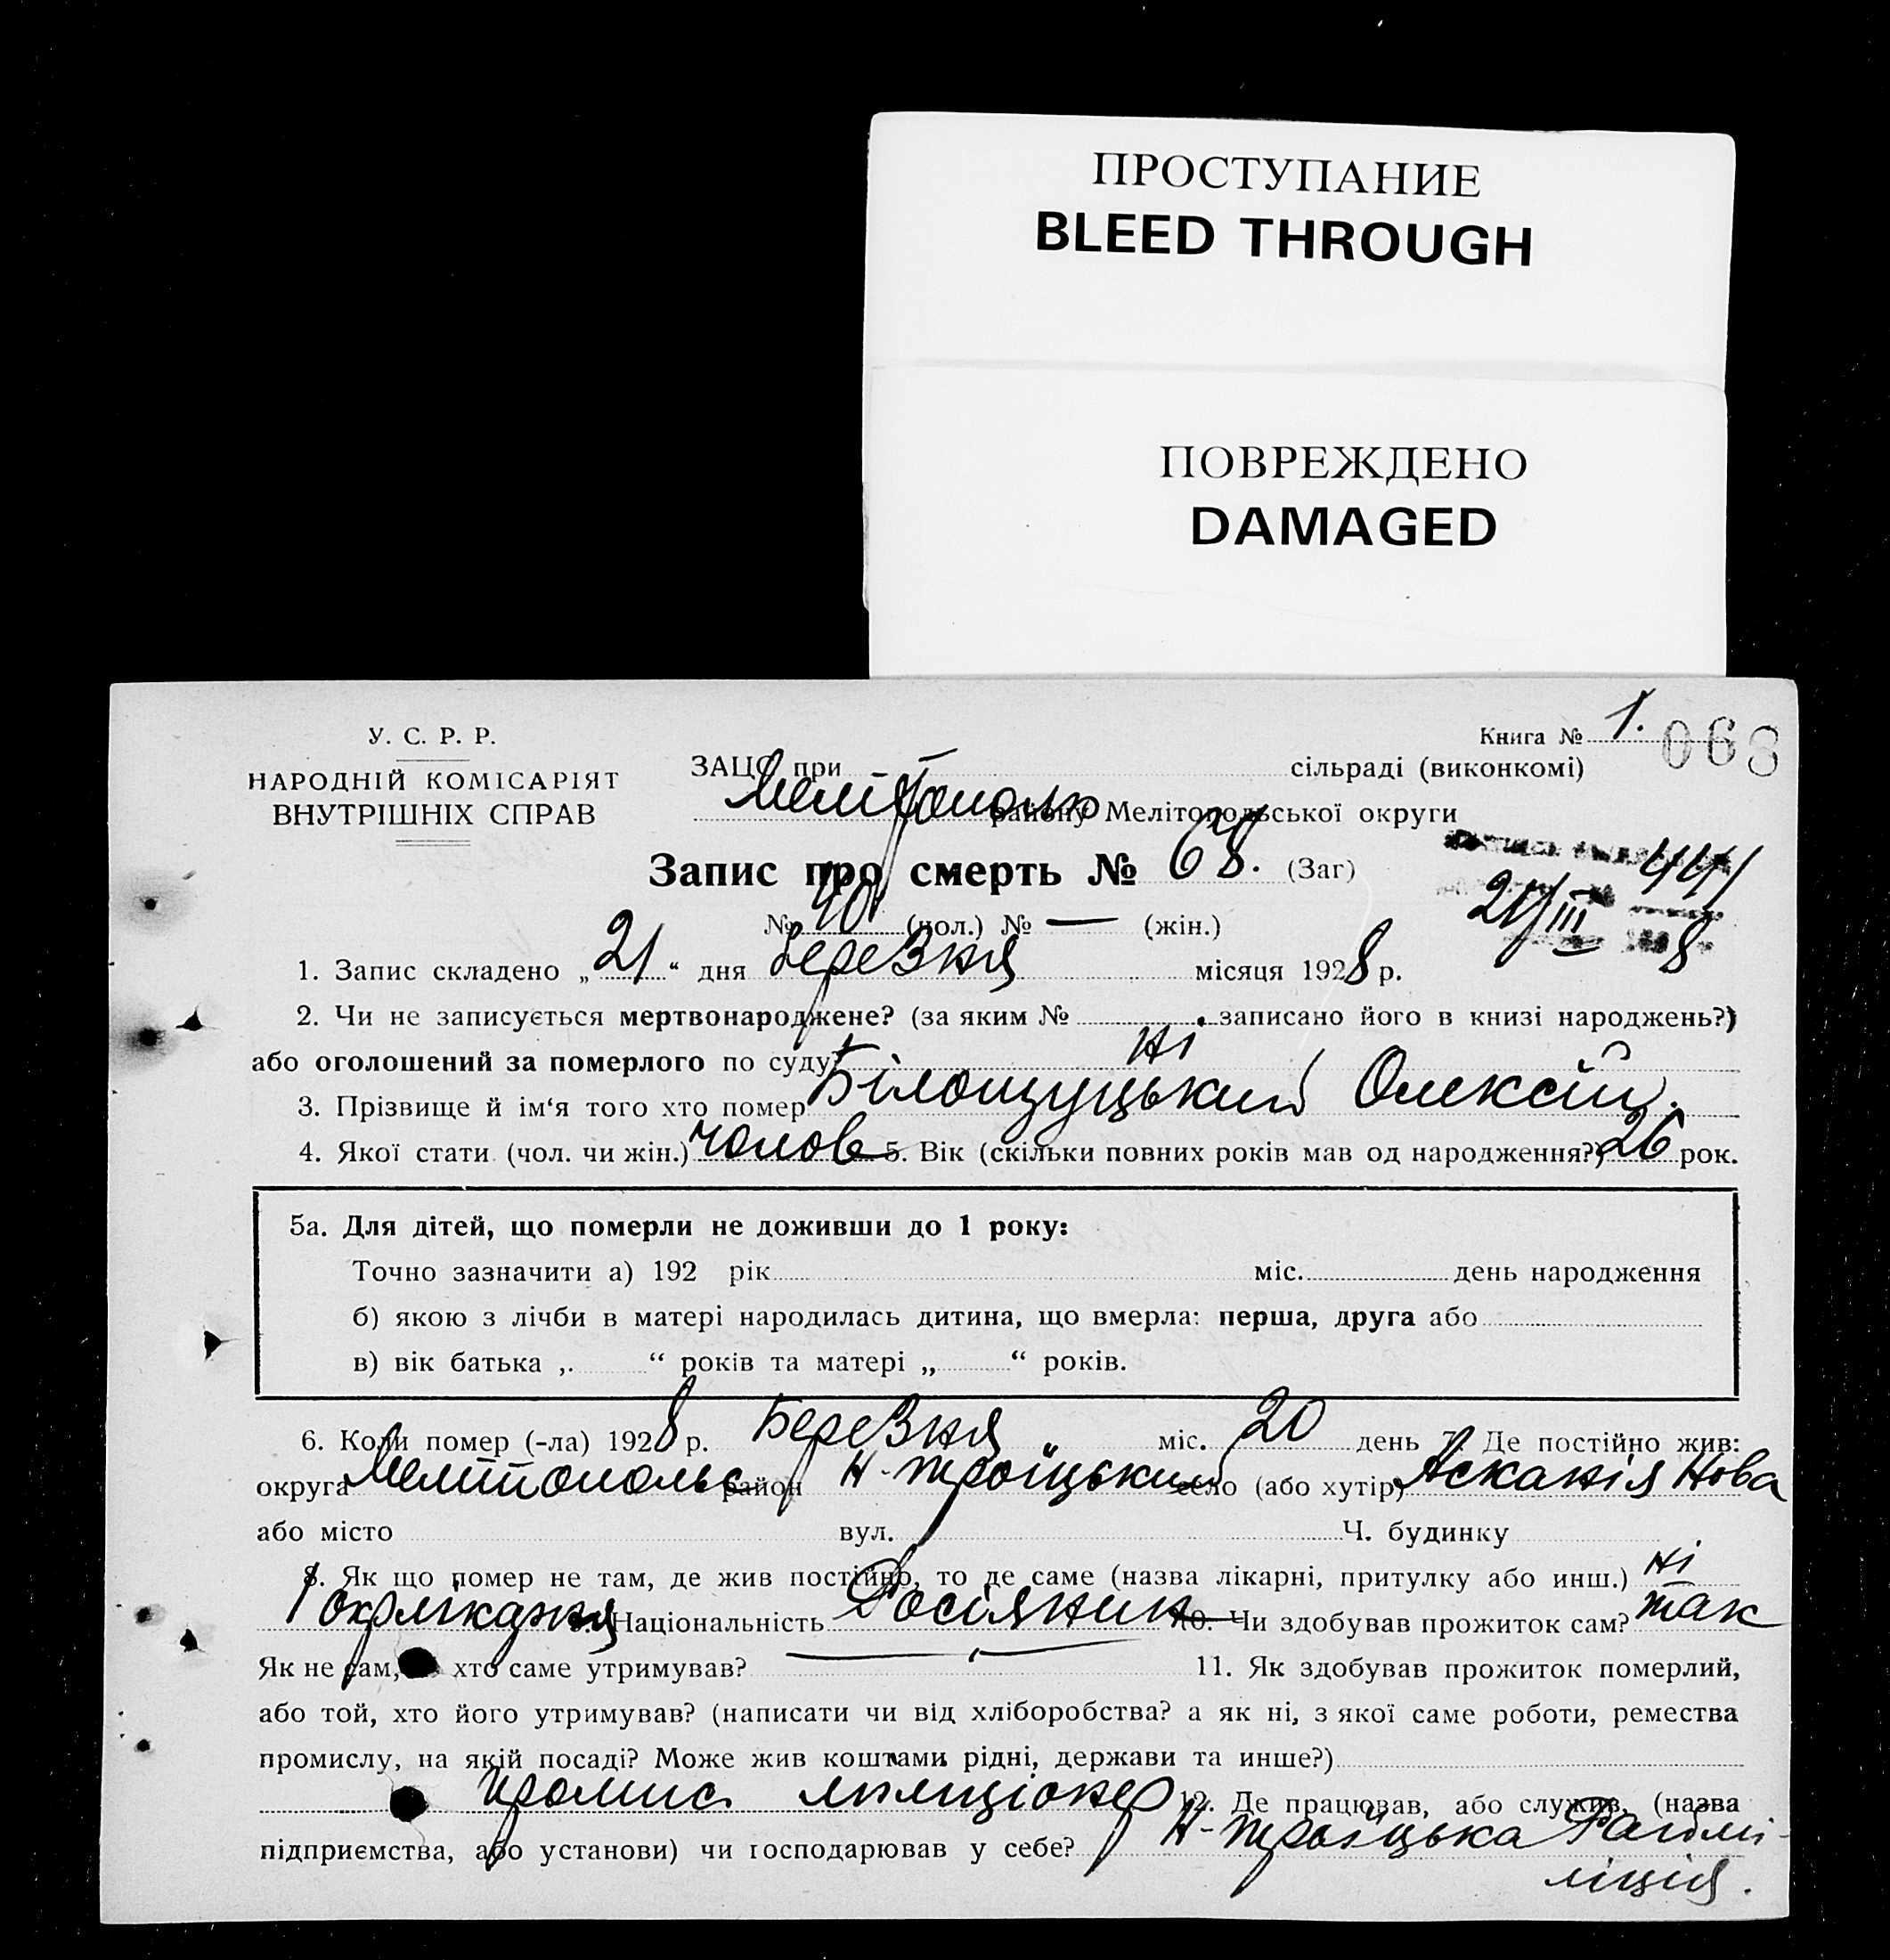 ПРОСТУПАНИЕ
BLEED THROUGH
ПОВРЕЖДЕНО
DAMAGED
У. С. Р. Р.
НАРОДНІЙ КОМІСАРІЯТ
ВНУТРІШНІХ СПРАВ
Книга № 1. 068
ЗАЦС при — сільраді (виконкомі)
Мелітополю району Мелітопольської округи
Запис про смерть № 68. (Заг)
441
№ 40 (чол.) № — (жін.)
21/III 8
1. Запис складено „21“ дня Березня місяця 1928 р.
2. Чи не записується мертвонароджене? (за яким № записано його в книзі народжень?)
або оголошений за померлого по суду? Ні
3. Прізвище й ім‘я того хто помер Білощуцький Олексій.
4. Якої стати (чол. чи жін.) чолов 5. Вік (скільки повних років мав од народження?) 26 рок.
5а. Для дітей, що померли не доживши до 1 року:
Точно зазначити а) 192 рік міс. день народження
б) якою з лічби в матері народилась дитина, що вмерла: перша, друга або
в) вік батька „ “ років та матері „ “ років.
6. Коли помер (-ла) 1928 р. Березня „ міс. 20 день 7. Де постійно жив:
округа Мелітопольс район Н-Троїцький село (або хутір) Асканія Нова
або місто вул. Ч. будинку
8. Як що помер не там, де жив постійно, то де саме (назва лікарні, притулку або инш.) Ні
1 окрлікарня 9. Національність Росіяник 10. Чи здобував прожиток сам? так
Як не сам, то хто саме утримував? 11. Як здобував прожиток померлий,
або той, хто його утримував? (написати чи від хліборобства? а як ні, з якої саме роботи, ремества
промислу, на якій посаді? Може жив коштами рідні, держави та инше?)
промис міліціонер 12. Де працював, або служив, (назва
підприємства, або установи) чи господарював у себе? Н-Троїцька Раймі-
ліція.